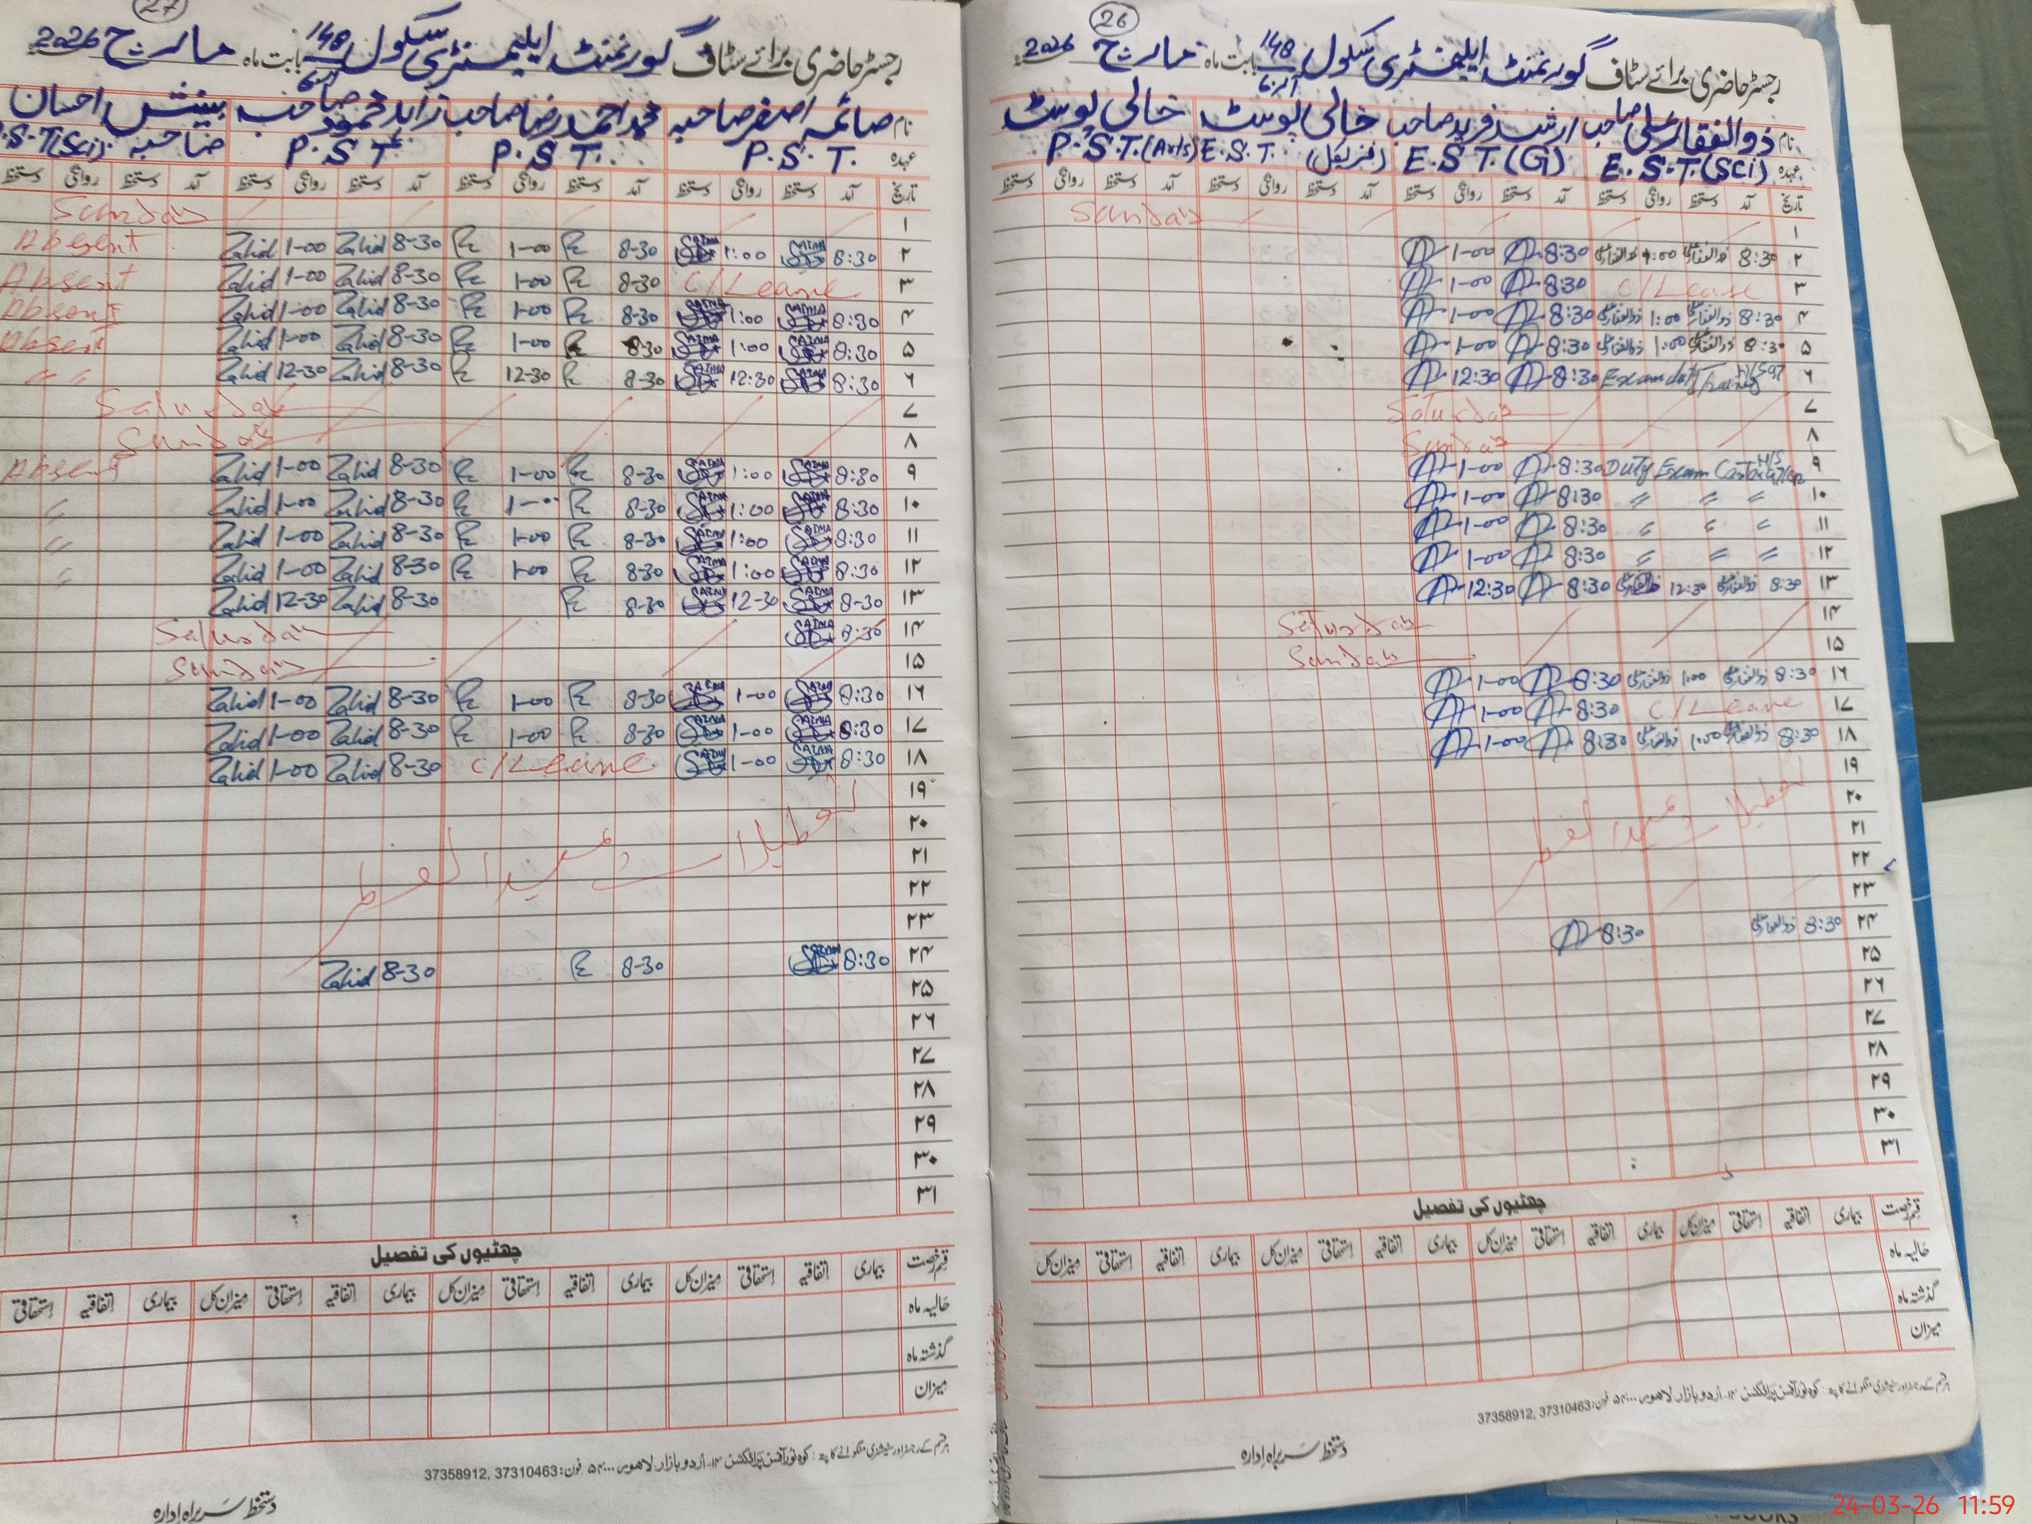 26
رجسٹر حاضری برائے سٹاف گورنمنٹ ایلیمنٹری سکول 148 بابت ماہ مارچ 2026
نام ذوالفقار علی صاحب ارشد فرید صاحب خالی پوسٹ خالی پوسٹ
عہدہ E.S.T.(SCi) E.S.T.(G) (فزیکل) E.S.T. P.S.T.(Arts)
تاریخ آمد دستخط روانگی دستخط آمد دستخط روانگی دستخط آمد دستخط روانگی دستخط آمد دستخط روانگی دستخط
۱ Sunday
۲ 8:30 ذوالفقار علی 1:00 ذوالفقار علی 8:30 1-00
۳ C/Leave 8:30 1-00
۴ 8:30 ذوالفقار علی 1:00 ذوالفقار علی 8:30 1-00
۵ 8:30 ذوالفقار علی 1:00 ذوالفقار علی 8:30 1-00
۶ Exam duty Training 8:30 12:30
۷ Saturday
۸ Sunday
۹ Duty Exam 8:30 1-00
۱۰ " " " 8:30 1-00
۱۱ " " " 8:30 1-00
۱۲ " " " 8:30 1-00
۱۳ 8:30 ذوالفقار علی 12:30 ذوالفقار علی 8:30 12:30
۱۴ Saturday
۱۵ Sunday
۱۶ 8:30 ذوالفقار علی 1:00 ذوالفقار علی 8:30 1-00
۱۷ C/Leave 8:30 1-00
۱۸ 8:30 ذوالفقار علی 1:00 ذوالفقار علی 8:30 1-00
۱۹
۲۰
تعطیلات عیدالفطر
۲۱
۲۲
۲۳
۲۴ 8:30 ذوالفقار علی 8:30
۲۵
۲۶
۲۷
۲۸
۲۹
۳۰
۳۱
چھٹیوں کی تفصیل
قسم رخصت بیماری اتفاقیہ استحقاقی میزان کل بیماری اتفاقیہ استحقاقی میزان کل بیماری اتفاقیہ استحقاقی میزان کل بیماری اتفاقیہ استحقاقی میزان کل
حالیہ ماہ
گذشتہ ماہ
میزان
ہر قسم کے رجسٹر اور سٹیشنری منگوانے کا پتہ: اردو بازار لاہور فون: 37310463, 37358912
دستخط سربراہ ادارہ
27
رجسٹر حاضری برائے سٹاف گورنمنٹ ایلیمنٹری سکول 148 بابت ماہ مارچ 2026
نام صائمہ اصغر صاحبہ محمد احمد رضا صاحب زاہد محمود صاحب بینش احسان صاحبہ
عہدہ P.S.T. P.S.T. P.S.T .S.T(Sci)
تاریخ آمد دستخط روانگی دستخط آمد دستخط روانگی دستخط آمد دستخط روانگی دستخط آمد دستخط روانگی دستخط
۱ Sunday
۲ 8:30 SAIMA 1:00 SAIMA 8-30 1-00 8-30 Zahid 1-00 Zahid Absent
۳ C/Leave 8-30 1-00 8-30 Zahid 1-00 Zahid Absent
۴ 8:30 SAIMA 1:00 SAIMA 8-30 1-00 8-30 Zahid 1-00 Zahid Absent
۵ 8:30 SAIMA 1:00 SAIMA 8-30 1-00 8-30 Zahid 1-00 Zahid Absent
۶ 8:30 SAIMA 12:30 SAIMA 8-30 12-30 8-30 Zahid 12-30 Zahid " "
۷ Saturday
۸ Sunday
۹ 8:30 SAIMA 1:00 SAIMA 8-30 1-00 8-30 Zahid 1-00 Zahid Absent
۱۰ 8:30 SAIMA 1:00 SAIMA 8-30 1-00 8-30 Zahid 1-00 Zahid "
۱۱ 8:30 SAIMA 1:00 SAIMA 8-30 1-00 8-30 Zahid 1-00 Zahid "
۱۲ 8:30 SAIMA 1:00 SAIMA 8-30 1-00 8-30 Zahid 1-00 Zahid "
۱۳ 8-30 SAIMA 12-30 SAIMA 8-30 8-30 Zahid 12-30 Zahid
۱۴ 8:30 SAIMA Saturday
۱۵ Sunday
۱۶ 8:30 SAIMA 1-00 SAIMA 8-30 1-00 8-30 Zahid 1-00 Zahid
۱۷ 8:30 SAIMA 1-00 SAIMA 8-30 1-00 8-30 Zahid 1-00 Zahid
۱۸ 8:30 SAIMA 1-00 SAIMA C/Leave 8-30 Zahid 1-00 Zahid
۱۹
۲۰
تعطیلات عیدالفطر
۲۱
۲۲
۲۳
۲۴ 8:30 SAIMA 8-30 8-30 Zahid
۲۵
۲۶
۲۷
۲۸
۲۹
۳۰
۳۱
چھٹیوں کی تفصیل
قسم رخصت بیماری اتفاقیہ استحقاقی میزان کل بیماری اتفاقیہ استحقاقی میزان کل بیماری اتفاقیہ استحقاقی میزان کل بیماری اتفاقیہ استحقاقی
حالیہ ماہ
گذشتہ ماہ
میزان
ہر قسم کے رجسٹر اور سٹیشنری منگوانے کا پتہ: اردو بازار لاہور فون: 37310463, 37358912
دستخط سربراہ ادارہ
24-03-26 11:59